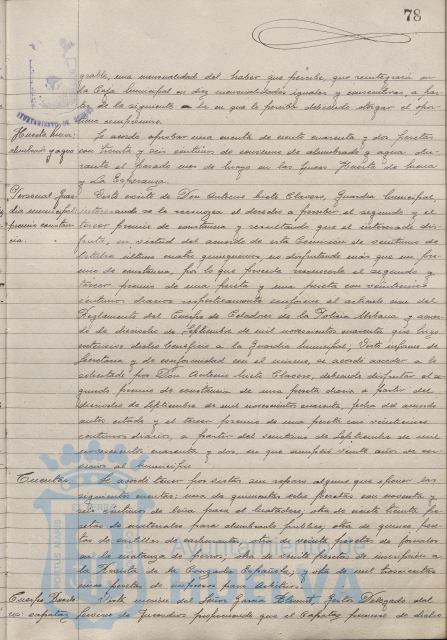 78
grable, una mensualidad del haber que percibe, que reintegrará en
la Caja municipal en diez mensualidades iguales y consecutivas, a par-
tir de la siguiente en que la perciba debiendo otorgar el opor-
tuno compromiso.
Huerta Mena: Se acordó aprobar una cuenta de ciento cuarenta y dos pesetas
alumbrado y agua con treinta y seis céntimos de consumo de alumbrado y agua du-
rante el pasado mes de Mayo en las fincas Huerta de Mena
y La Esperanza.
Personal Guar- Visto escrito de Don Antonio Nieto Clavero, Guardia municipal,
dia municipal interesando se le reconozca el derecho a percibir el segundo y el
premio constan- tercer premio de constancia y resultando que el interesado dis-
cia. fruta, en virtud del acuerdo de esta Comisión de
Octubre último cuatro quinquenios, no disfrutando más que un pre-
mio de constancia, por lo que procede reconocerle el segundo y
tercer premio de una peseta y una peseta con veinticinco
céntimos diarios respectivamente conforme al artículo del
Reglamento del Cuerpo de Celadores de la Policía Urbana y acuer-
do de dieciocho de Septiembre de mil novecientos cuarenta que hizo
extensivos dichos beneficios a la Guardia Municipal; Visto informe de
Secretaría y de conformidad con el mismo, se acordó acceder a lo
solicitado por Don Antonio Nieto Clavero, debiendo disfrutar el se-
gundo premio de constancia de una peseta diaria a partir del
dieciocho de Septiembre de mil novecientos cuarenta, fecha del acuerdo
antes citado y el tercer premio de una peseta con veinticinco
céntimos diarios, a partir del de Septiembre de mil
novecientos cuarenta y dos, en que cumplió veinte años de ser-
vicios al Municipio
Cuentas Se acordó tener por vistas sin reparo alguno que oponer las
siguientes cuentas: una de quinientas ocho pesetas con noventa y
seis céntimos de leña para el Matadero; otra de ciento treinta pe-
setas de materiales para alumbrado público; otra de quince pese-
tas de de carburante; otra de veinte pesetas de jornales
en la matanza de perros; otra de veinte pesetas de suscripción a
la Revista de la Cruzada Española; y otra de mil trescientas
una pesetas de impresos para Arbitrios.
Cuerpo Bombe- Visto moción del Señor García Gestor Delegado del
ros: capataz Servicio de Incendios proponiendo que el Capataz primero de dicho
AYUNTAMIENTO DE
PORTUS MARIS
Ayuntamiento de
HUELVA